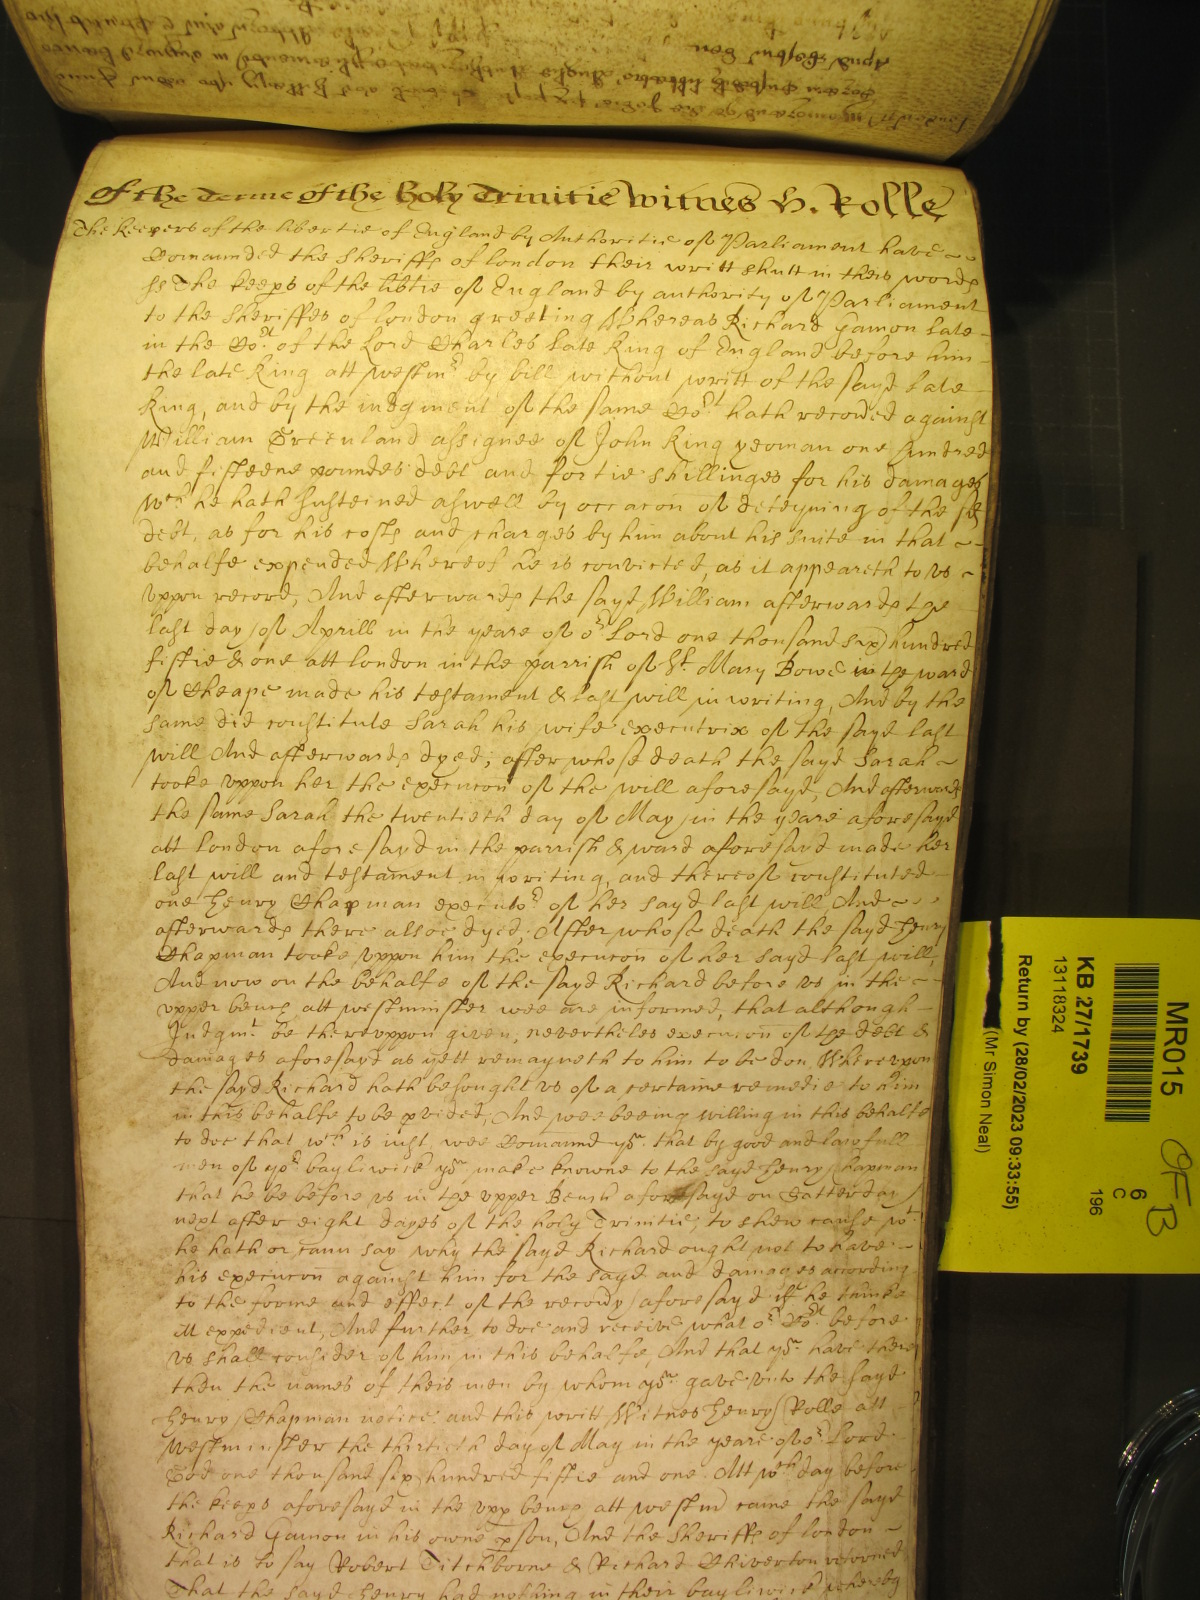 of the Terme of the holy Trinitie Witnes H. Rolle
The keepers of the libertie of England by Authoritie of Parliament have
Comaunded the Sheriffs of london their writt shutt in theis words
ss The keeps of the libtie of England by authority of Parliament
to the Sheriffes of london greeting Whereas Richard Gamon late
in the Cort of the Lord Charles late King of England before him
the late King att westmr by bill without writt of the sayd late
King, and by the iudgment of the same Cort hath recoved against
William Greenland assignee of John King yeoman one hundred
and fifteene poundes debt and fortie shillinges for his damages
wch he hath susteined aswell by occacon of deteyning of the sd
debt, as for his costs and charges by him about his suite in that
behalfe expended Whereof he is convicted, as it appeareth to vs
vppon record, And afterwards the sayd William afterwards the
last day of Aprill in the yeare of or Lord one thousand six hundred
fiftie & one att london in the parrish of St Mary Bowe in the ward
of Cheape made his testament & last will in writing, And by the
same did constitute Sarah his wife executrix of the sayd last
will And afterwards dyed; after whose death the sayd Sarah
tooke vppon her the execucon of the will aforesayd, And afterwards
the same Sarah the twentieth day of May in the yeare aforesayd
att london aforesayd in the parrish & ward aforesayd made her
last will and testament in writing, and thereof constituted
one Henry Chapman executor of her sayd last will And
afterwards there alsoe dyed; After whose death the sayd Henry
Chapman tooke vppon him the execucon of her sayd last will,
And now on the behalfe of the sayd Richard before vs in the
vpper bench att westminster wee are informed, that although
Judgmt be therevppon given, nevertheles execucion of the debt &
damages aforesayd as yett remayneth to him to be don Wherevpon
the sayd Richard hath besought vs of a certaine remedie to him
in this behalfe to be pvided, And wee beeing willing in this behalfe
to doe that wch is iust, wee Comaund you that by good and lawfull
men of yor bayliwick you make knowne to the sayd Henry Chapman
that he be before vs in the vpper Bench aforesayd on Satterday
next after eight dayes of the holy Trinitie, to shew cause wt
he hath or cann say why the sayd Richard ought not to have
his execucon against him for the sayd and damages according
to the forme and effect of the recovy aforesayd if he thinke
itt expedient, And further to doe and receive what or Cort before
vs shall consider of him in this behalfe, And that you have there
then the names of theis men by whom you gave vnto the sayd
Henry Chapman notice: and this writt Witnes Henry Rolle att
Westminster the thirtieth day of May in the yeare of or Lord
God one thousand six hundred fiftie and one. Att wch day before
the keeps aforesayd in the vpp bench att westm came the sayd
Richard Gamon in his owne pson, And the Sheriffs of london
that is to say Robert Titchborne & Richard Chiverton retorned
That the sayd Henry had nothing in their bayliwick whereby
MR015
KB 27/1739
13118324
Return by (28/02/2023 09:33:55)
(Mr Simon Neal)
6
C
196
OFB